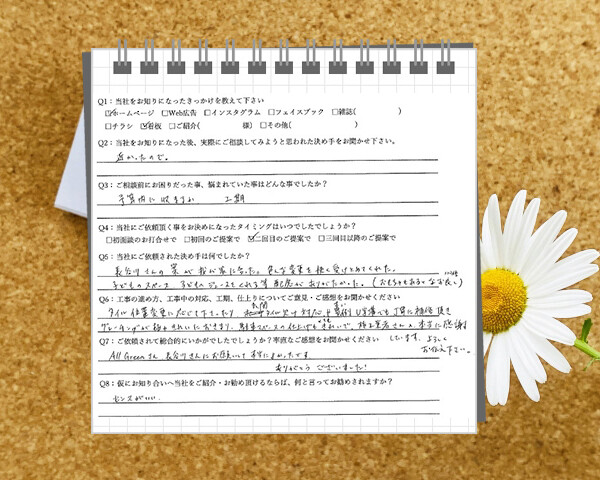 Q1：当社をお知りになったきっかけを教えて下さい
☑ホームページ □Web広告 □インスタグラム □フェイスブック □雑誌( )
□チラシ ☑看板 □ご紹介( 様) □その他( )
Q2：当社をお知りになった後、実際にご相談してみようと思われた決め手をお聞かせ下さい。
近かったので。
Q3：ご相談前にお困りだった事、悩まれていた事はどんな事でしたか？
予算内に収まるか 工期
Q4：当社にご依頼頂く事をお決めになったタイミングはいつでしたでしょうか？
□初面談のお打合せで □初回のご提案で ☑二回目のご提案で □三回目以降のご提案で
Q5：当社にご依頼された決め手は何でしたか？
長谷川さんの案が我が家に合った。色んな要望を快く受けとめてくれた。
子どものスペース 子どもの ジュースをくれる等 配慮がありがたかった。(おもちゃもあるとなお良い)
Q6：工事の進め方、工事中の対応、工期、仕上りについてご意見・ご感想をお聞かせください
タイル 作業 に応じて下さったり 玄関 タイル 対応
グレーチングが 本当に感謝
Q7：ご依頼されて総合的にいかがでしたでしょうか？率直なご感想をお聞かせください
しています。よろしく
お伝え下さい。
All Greenさん 長谷川さんにお願いして本当によかったです
ありがとうございました！
Q8：仮にお知り合いへ当社をご紹介・お勧め頂けるならば、何と言ってお勧めされますか？
センスがいい。